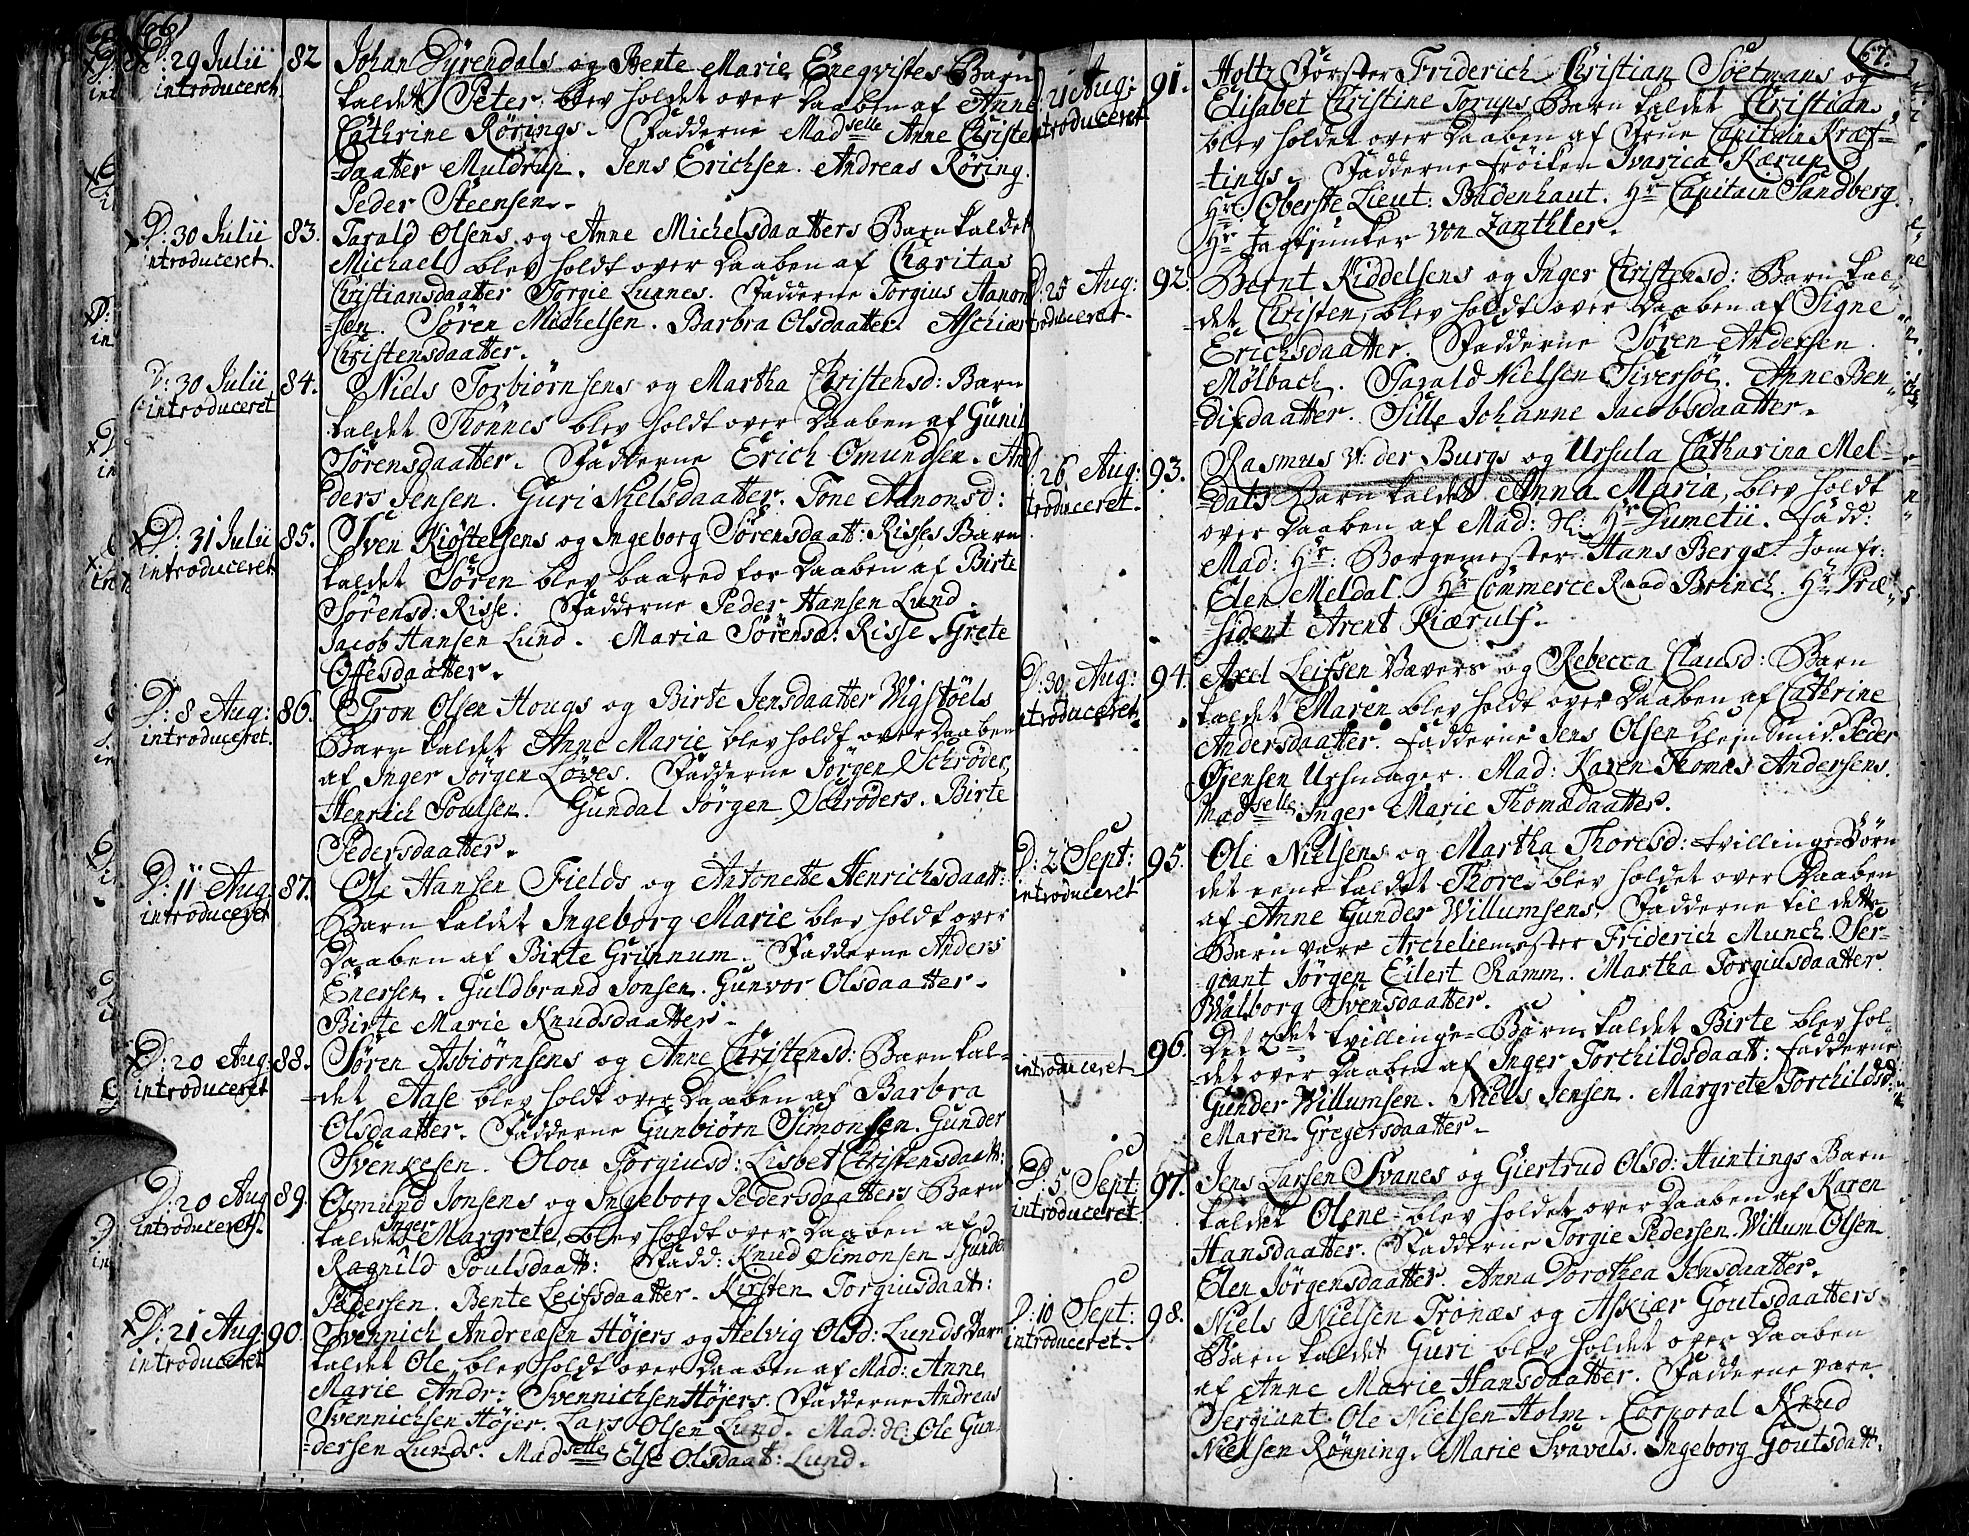 66
D: 29 Julii 82 Johan Dyrendals og Bente Marie Eneqvistes Barn
introduceret. kaldet Peter, blev holdet over Daaben af Anne
Cathrine Rörings. Fadderne Madselle Anne Christen
=daatter Muldrup. Jens Erichsen. Andreas Röring.
Peder Steensen.
D: 30 Julii 83. Tarald Olsens og Anne Michelsdaatters Barn kaldet
introduceret. Michael blev holdt over Daaben af Charitas
Christiansdaatter Torgie Lunnes. Fadderne Torgius Aanon
=sen. Sören Michelsen. Barbra Olsdaatter. Aschiær
Christensdaatter.
D: 30 Julii 84. Niels Torbiörnsens og Martha Christensd: Barn
introduceret kaldet Thönnes blev holdt over Daaben af Gunil
Sörensdaatter. Fadderne Erich Omundsen. An
ders Jensen. Guri Nielsdaatter. Tone Aanonsd:
D: 31 Julii 85. Sven Kiöstelsens og Ingeborg Sörensdaatt: Risses Barn
introduceret. kaldet Sören blev baared for Daaben af Birte
Sörensd: Risse. Fadderne Peder Hansen Lund.
Jacob Hansen Lund. Maria Sörensd: Risse. Grete
Offesdaatter.
D: 8 Aug: 86. Tron Olsen Hougs og Birte Jensdaatter Wigstöels
introduceret. Barn kaldet Anne Marie blev holdt over Daaben
af Inger Jörgen Löves. Fadderne Jörgen Schröder,
Henrich Poulsen. Gundal Jörgen Schröders. Birte
Pedersdaatter.
D: 11 Aug: 87. Ole Hansen Fields og Antonette Henrichsdaatt:
introduceret Barn kaldet Ingeborg Marie blev holdt over
Daaben af Birte Grinnum. Fadderne Anders
Enersen. Guldbrand Jonsen. Gunvor Olsdaatter.
Birte Marie Knudsdaatter.
D: 20 Aug: 88. Sören Asbiörnsens og Anne Christensd: Barn kal=
introduceret =det Aase blev holdt over Daaben af Barbra
Olsdaatter. Fadderne Gunbiörn Simonsen. Gunder
Svenkesen. Olou Torgiusd: Lisbet Christensdaatt:
D: 20 Aug 89. Osmund Jonsens og Ingeborg Pedersdaatters Barn
introduceret. kaldet Inger Margrete, blev holdt over Daaben af
Ragnild Poulsdaatt: Fadd: Knud Simonsen. Gunder
Pedersen. Bente Leifsdaatter. Kirsten Torgiusdaatt:
D: 21 Aug: 90. Svennich Andreæsen Höjers og Helvig Olsd: Lunds Barn
introduceret kaldet Ole blev holdt over Daaben af Mad: Anne
Marie Andr: Svennichsen Höjers. Fadderne Andreas
Svennichsen Höjer. Lars Olsen Lund. Mad: Ole Gun
=dersen Lunds. Madselle Else Olsdaatt: Lund.
67.
D: 21 Aug: 91. Holtz Förster Friderich Christian Söetmans og
introduceret Elisabet Christine Torups Barn kaldet Christian
blev holdet over Daaben af Frue Capitain Kræf=
=tings. Fadderne fröiken Ivarica Kærup.
Hr: Oberste Lieut: Badenhaut. Hr Capitain Sandberg.
Hr Jagtjunker von Zanthler.
D: 25 Aug: 92. Bernt Kiddelsens og Inger Christensd: Barn kal=
introduceret. =det Christen, blev holdt over Daaben af Signe
Erichsdaatter. Fadderne Sören Andersen
Mölbach. Tarald Nielsen Siversöe. Anne Ben=
=dixdaatter. Sille Johanne Jacobsdaatter.
D: 26 Aug: 93. Rasmus v: der Burgs og Ursula Catharina Mel=
introduceret. =dals Barn kaldet Anna Maria, blev holdt
over Daaben af Mad: Sl: Hr Dumetii. Fadd:
Mad: Hr: Borgemester Hans Bergs. Jomfr:
Elen Meldal. Hr Commerce Raad Brinch. Hr Præ=
sident Arent Kiærulf.
D: 30 Aug: 94. Axel Leifsen Bavers og Rebecca Clausd: Barn
introduceret. kaldet Maren blev holdt over Daaben af Cathrine
Andersdaatter. Fadderne Jens Olsen Kleinsmid. Peder
Öjensen Urhmager. Mad: Karen Thomas Andersens.
Madselle Inger Marie Thomædaatter.
D: 2 Sept: 95. Ole Nielsens og Martha Thoresd: tvillinge=Börn
introduceret det eene kaldet Thore, blev holdet over Daaben
af Anne Gunder Willumsens. Fadderne til dette
Barn vare Archeliemester Friderich Munch. Ser=
=giant Jörgen Eilert Ramm. Martha Torgiusdaatter.
Walborg Svensdaatter.
96. Det 2det tvillinge=Barn kaldet Birte blev hol=
introduceret =det over Daaben af Inger Torchildsdaatt: Fadderne
Gunder Willumsen. Niels Jensen. Margrete Torchildsd:
Maren Gregersdaatter.
D: 5 Sept: 97. Jens Larsen Svanes og Giertrud Olsd: Huntings Barn
introduceret. kaldet Olene blev holdet over Daaben af Karen
Hansdaatter. Fadderne Torgie Pedersen. Willum Olsen
Elen Jörgensdaatter. Anna Dorothea Jensdaatter.
D: 10 Sept: 98. Niels Nielsen Tronæs og Askiær Goutsdaatters
introduceret. Barn kaldet Guri blev holdet over Daaben
af Anne Marie Hansdaatter. Fadderne vare
Sergiant Ole Nielsen Holm. Corporal Knud
Nielsen Rönning. Marie Svavels. Ingeborg Goutsdatt: